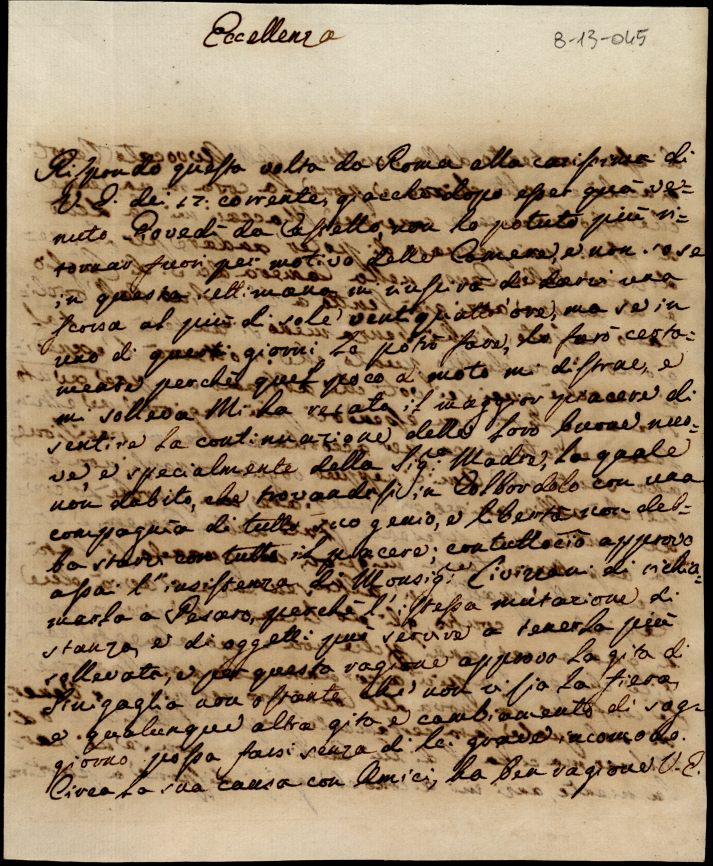 Eccellenza
8-13-045
Rispondo questa volta da Roma alla carissima di
V. E. dei 17. corrente, giacchè dopo esser quà ve-
nuto Giovedì da Castello, non ho potuto più ri-
tornar fuori per motivo delle Camere, e non so se
in questa settimana mi riuscirà di darvi una
scorsa al più di sole vent'quattr'ore, ma se in
uno di questi giorni lo potrò fare, lo farò certa-
mente perchè quel poco di moto mi distrae, e
mi solleva. Mi ha recato il maggior piacere di
sentire la continuazione delle loro buone nuo-
ve, e specialmente della Sig.ra Madre, la quale
non dubito, che trovandosi in Colbordolo con una
compagnia di tutto suo genio, e libertà non deb-
ba starvi con tutto il piacere; contuttociò approvo
assai l'insistenza di Monsig.re Civizzani di richia-
marla a Pesaro, perchè l'istessa mutazione di
stanza, e di oggetti può servire a tenerla più
sollevata, e per questa ragione approvo la gita di
Sinigaglia non ostante che non vi sia la Fiera,
e qualunque altra gita e cambiamento di sog-
giorno possa farsi senza di lei grave incomodo.
Circa la sua causa con Amici, ha ben ragione V. E.